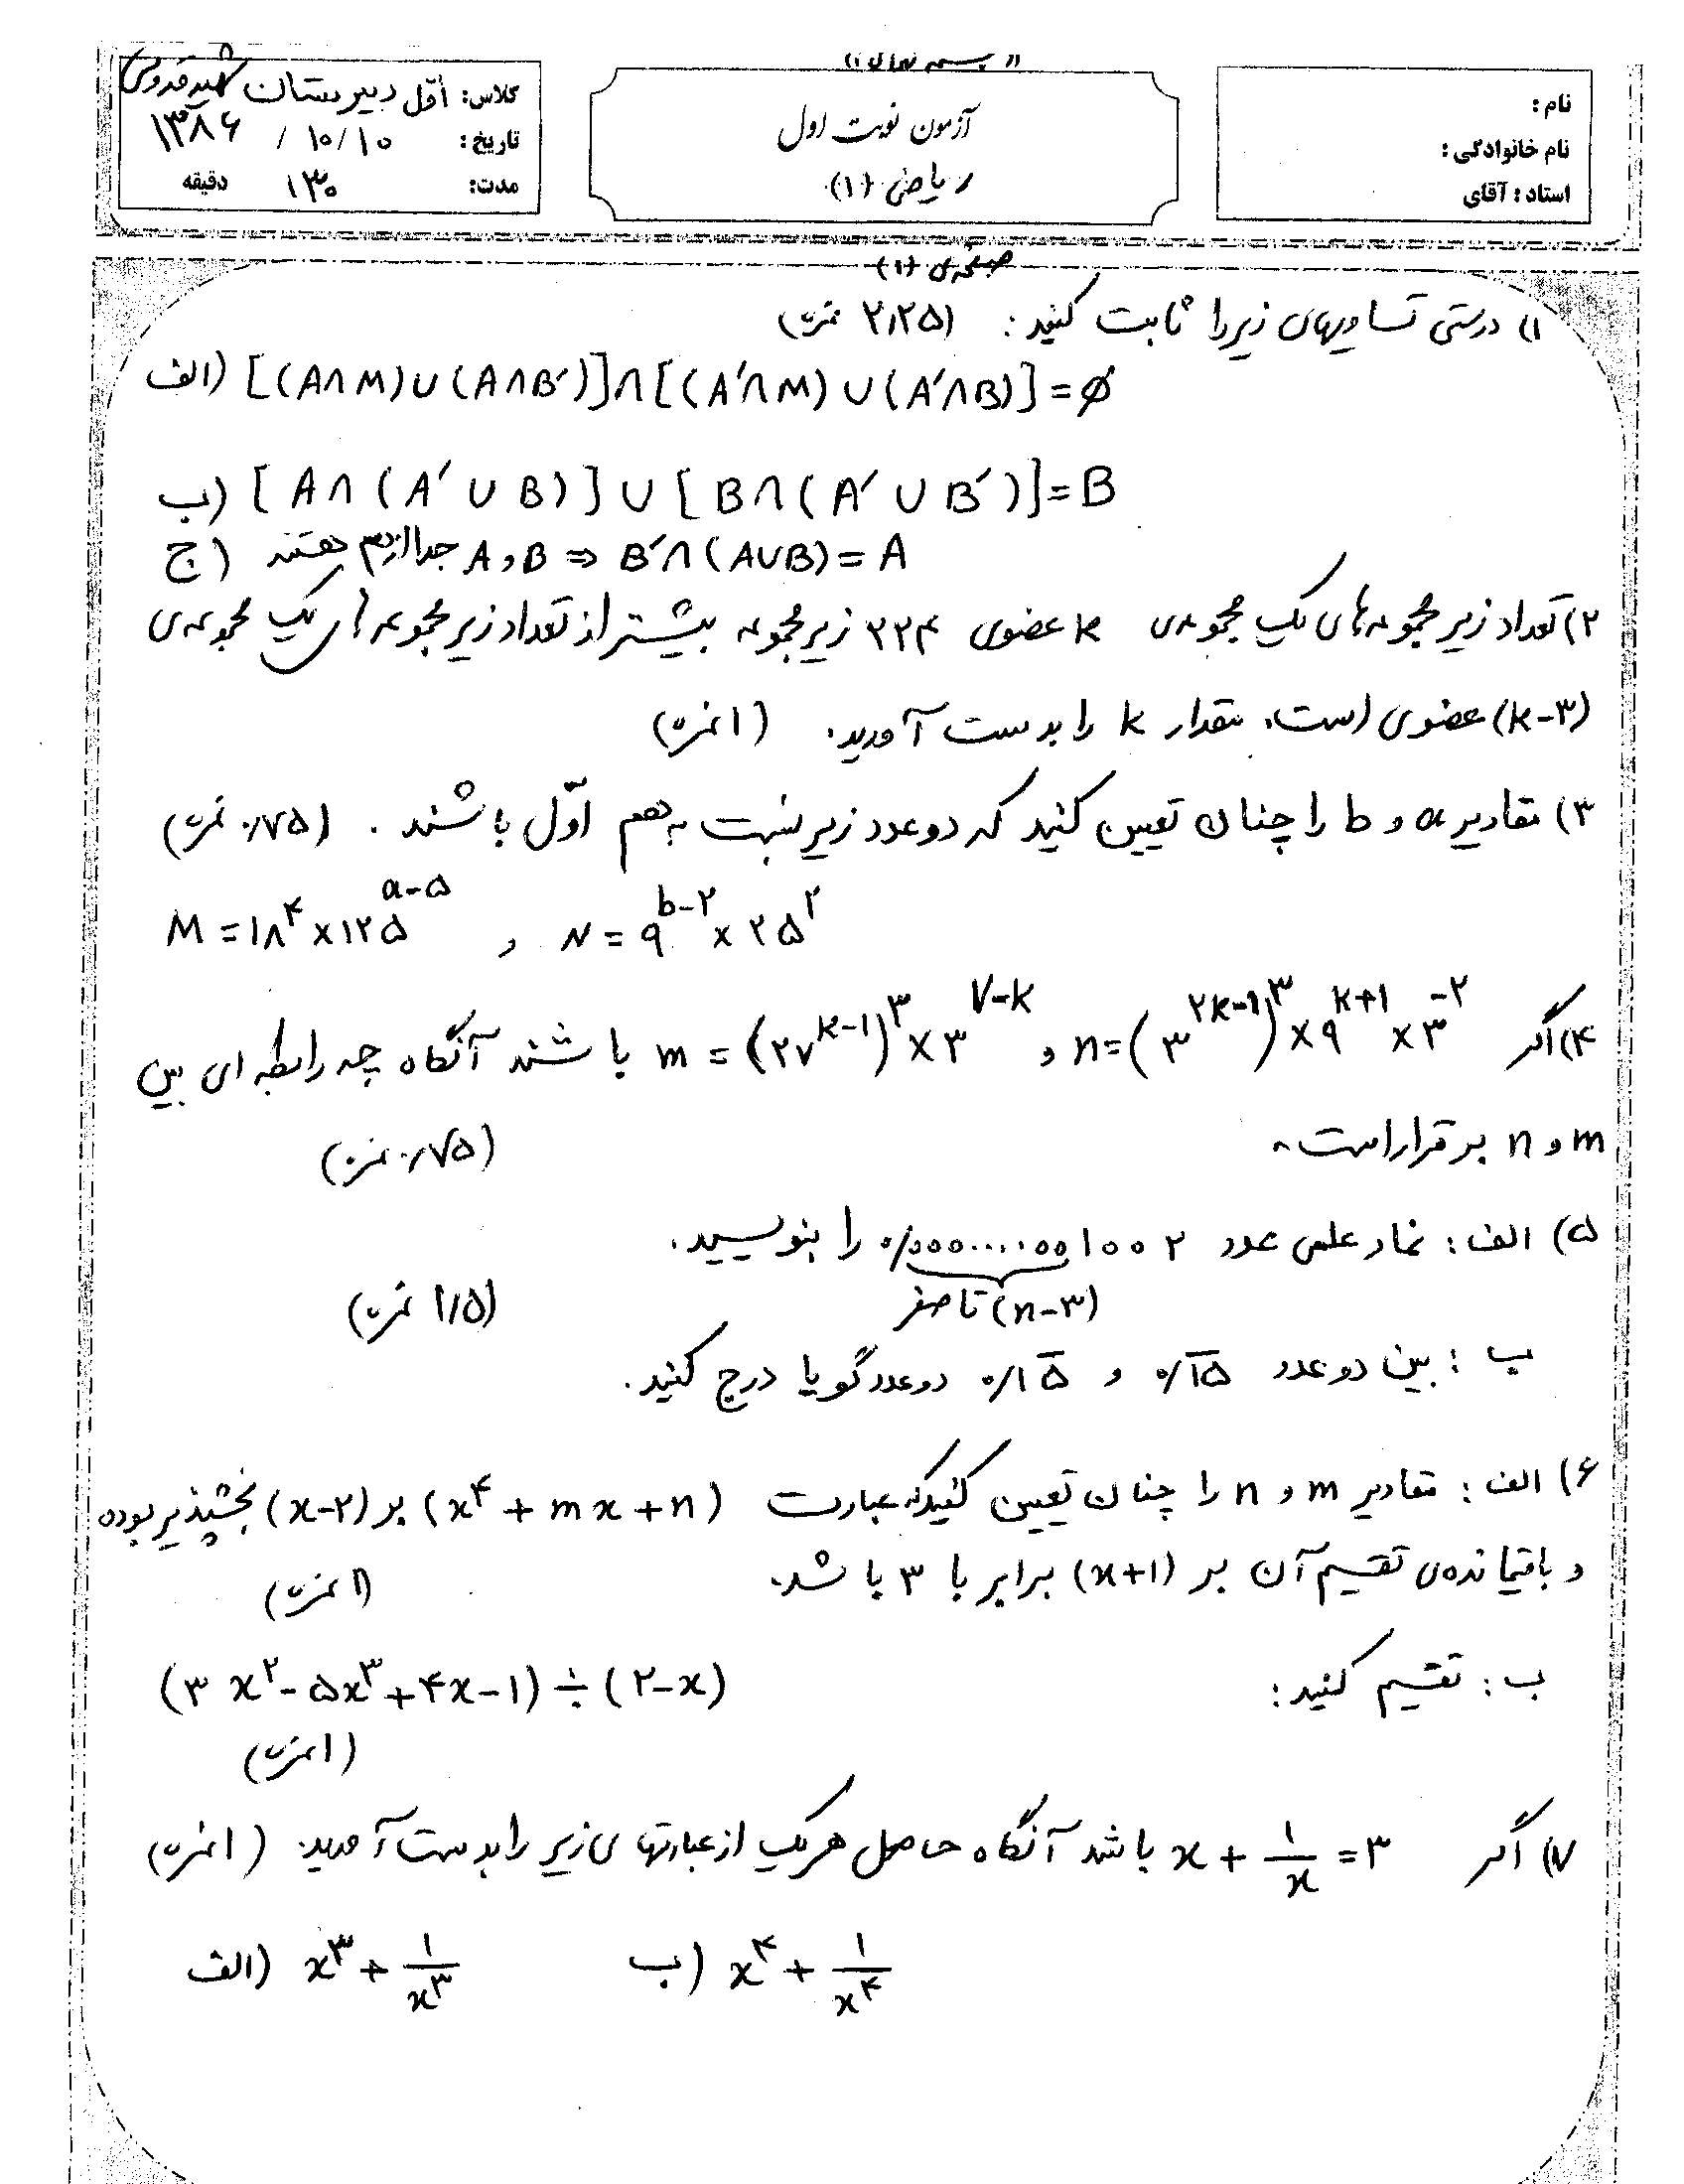 باسمه تعالی
نام :
نام خانوادگی :
استاد : آقای
آزمون نوبت اول
ریاضی (۱)
کلاس: اوّل دبیرستان شهید قدوسی
تاریخ : ۱۰/۱۰/ ۱۳۸۶
مدت: ۱۳۰ دقیقه
صفحه‌ی (۱)
۱) درستی تساویهای زیر را ثابت کنید: (۲٫۲۵ نمره)
الف) [(A∩M)∪(A∩B′)]∩[(A′∩M)∪(A′∩B)]=∅
ب) [A∩(A′∪B)]∪[B∩(A′∪B′)]=B
ج) A و B جدا از هم هستند ⇒ B′∩(A∪B)=A
۲) تعداد زیر مجموعه‌های یک مجموعه‌ی k عضوی ۲۲۴ زیرمجموعه بیشتر از تعداد زیر مجموعه‌های یک مجموعه‌ی
(k-۳) عضوی است. مقدار k را بدست آورید. (۱ نمره)
۳) مقادیر a و b را چنان تعیین کنید که دو عدد زیر نسبت به هم اوّل باشند. (۰٫۷۵ نمره)
M = ۱۸^۴ × ۱۲۵^(a-۵) , N = ۹^(b-۲) × ۲۵^۲
۴) اگر n = (۳^(۲k-۱))^۳ × ۹^(k+۱) × ۳^(-۲) و m = (۲۷^(k-۱))^۳ × ۳^(۷-k) باشند آنگاه چه رابطه ای بین
m و n برقرار است. (۰٫۷۵ نمره)
۵) الف: نماد علمی عدد ۰٫۰۰۰۰...۰۰۰۱۰۰۲ را بنویسید.
(n-۳) تا صفر (۱٫۵ نمره)
ب: بین دو عدد ۰٫۱̅۵̅ و ۰٫۱۵̅ دو عدد گویا درج کنید.
۶) الف: مقادیر m و n را چنان تعیین کنید که عبارت (x^۴ + mx + n) بر (x-۲) بخشپذیر بوده
و باقیمانده‌ی تقسیم آن بر (x+۱) برابر با ۳ باشد. (۱ نمره)
ب: تقسیم کنید: (۳x^۲ - ۵x^۳ + ۴x - ۱) ÷ (۲-x)
(۱ نمره)
۷) اگر x + ۱/x = ۳ باشد آنگاه حاصل هر یک از عبارتهای زیر را بدست آورید. (۱ نمره)
الف) x^۳ + ۱/x^۳ ب) x^۴ + ۱/x^۴